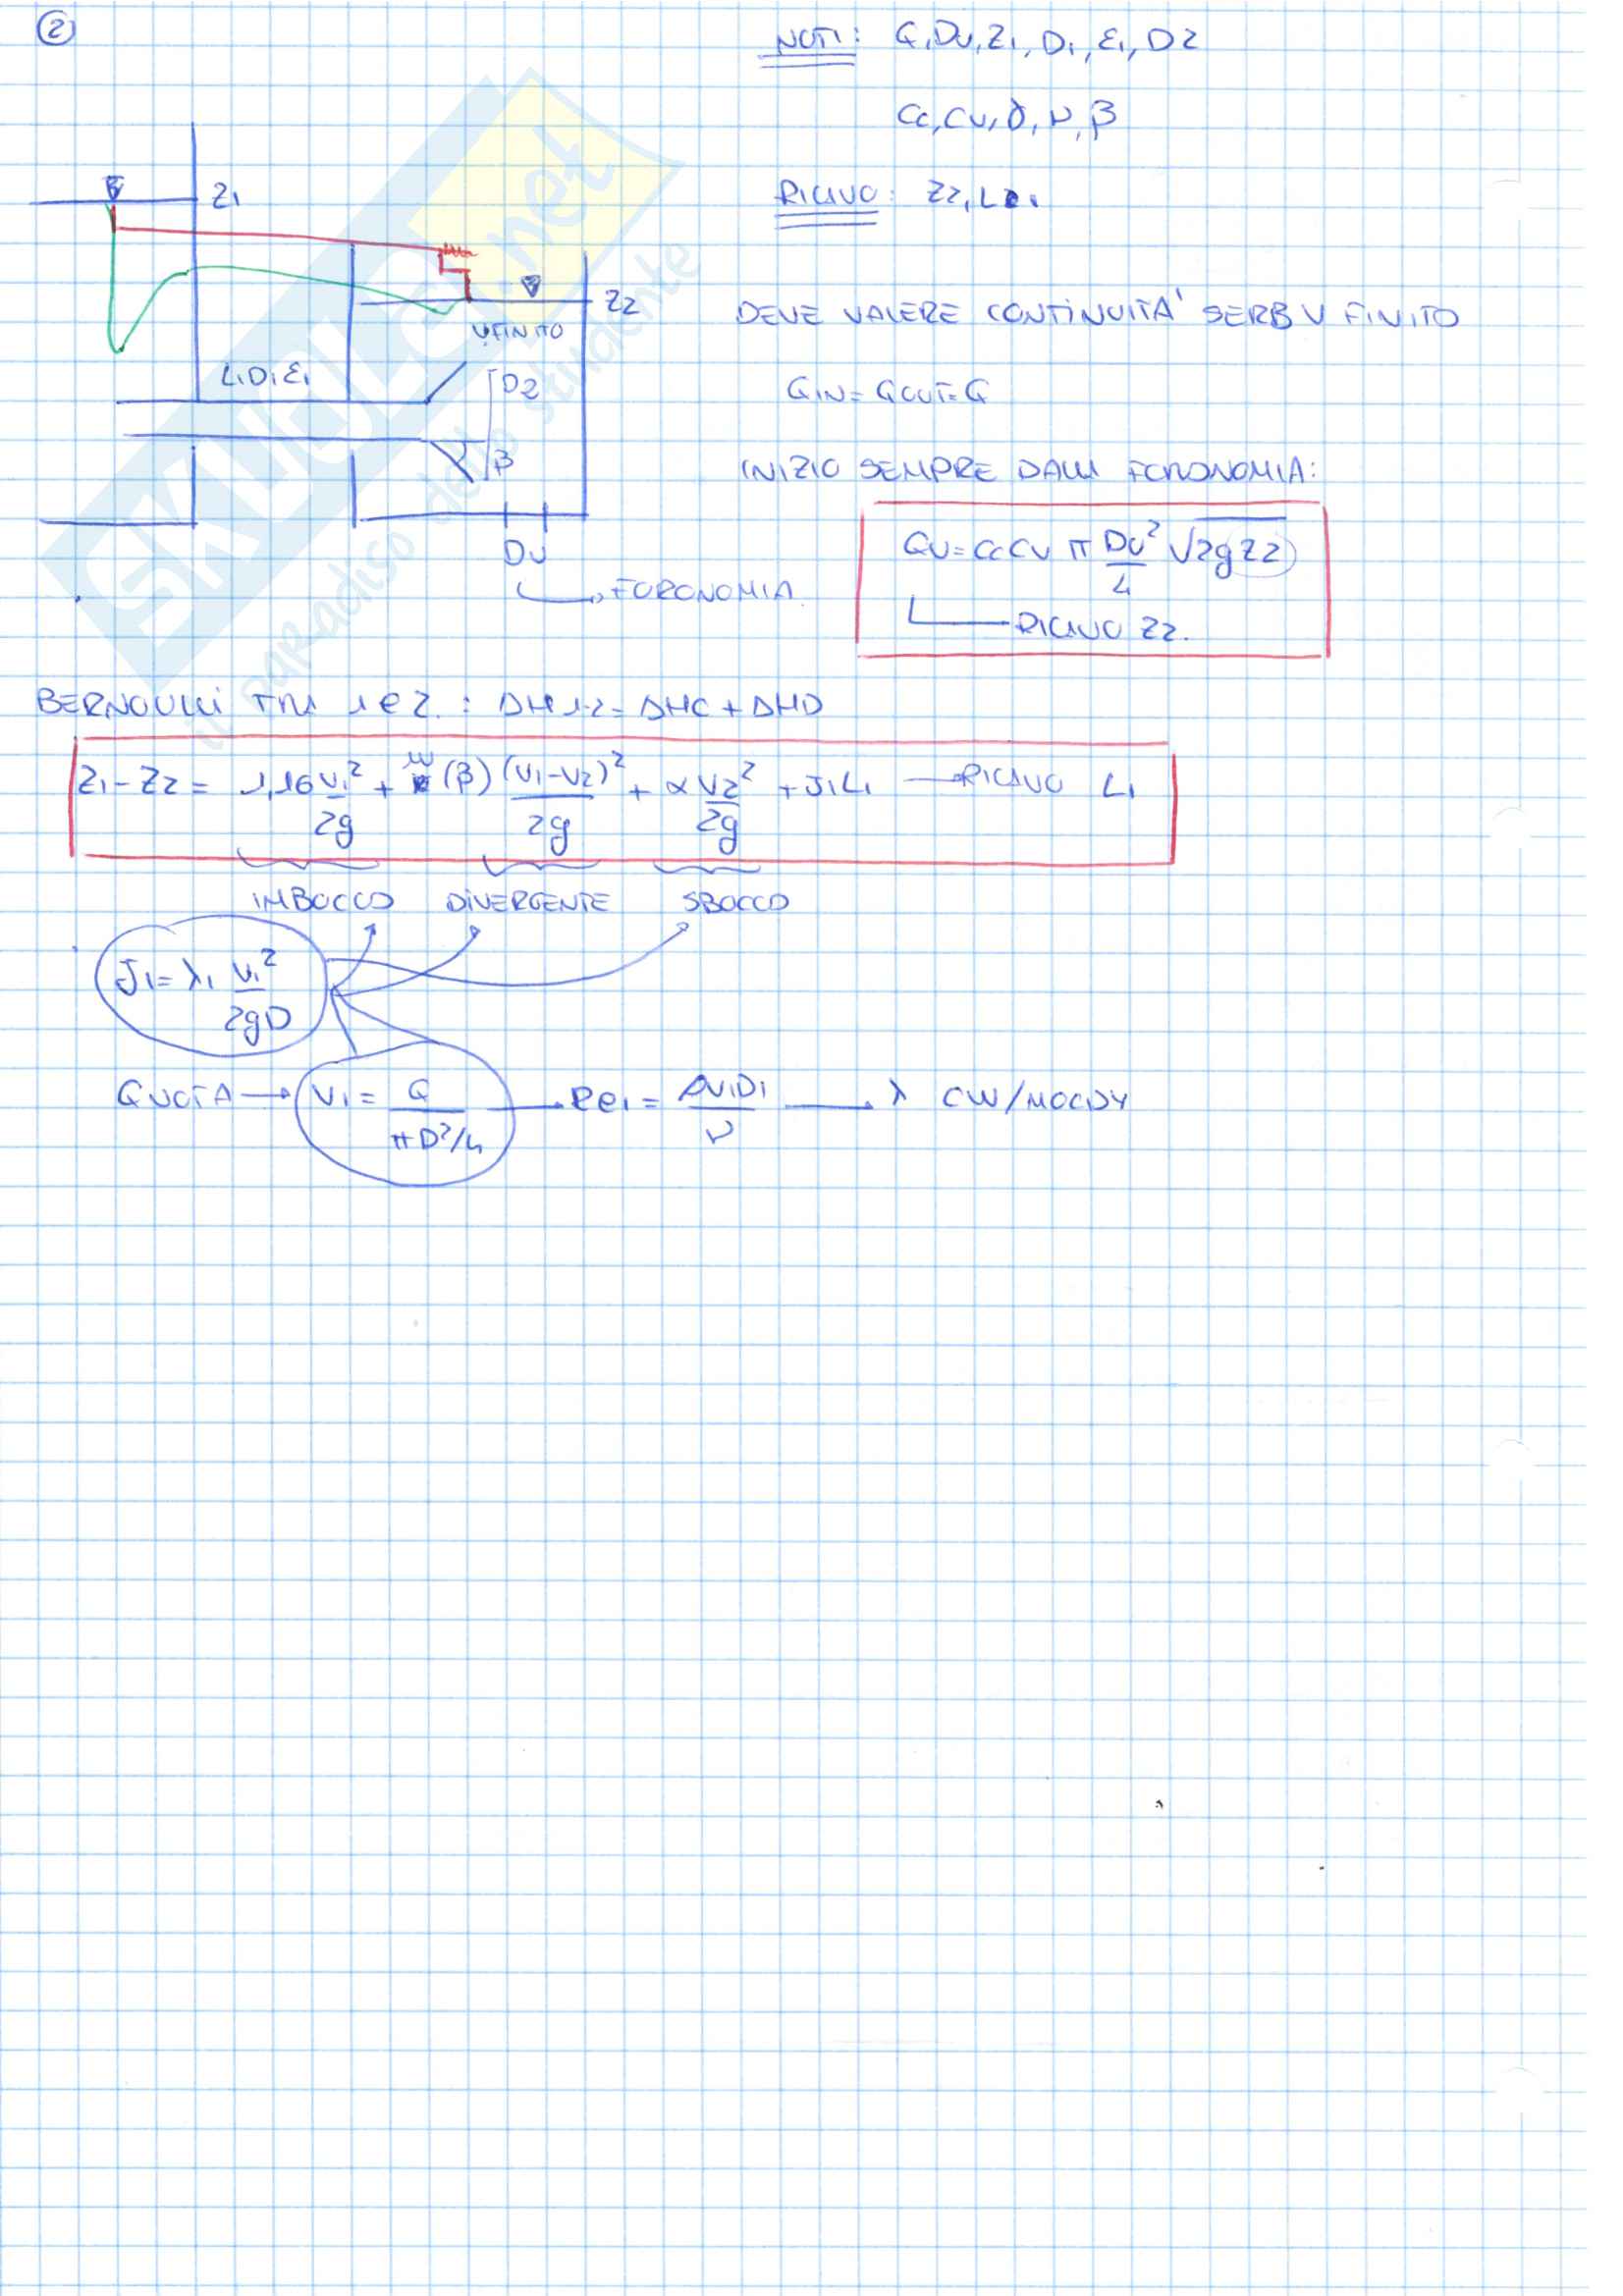 ②
NOTI: Q, Du, Z1, D1, ε1, D2
Cc, Cv, γ, μ, β
RICAVO: Z2, L1
Z1
Z2
V FINITO
L1 D1 ε1
D2
β
Du
FORONOMIA
DEVE VALERE CONTINUITA' SERB V FINITO
QIN = QOUT = Q
INIZIO SEMPRE DALLA FORONOMIA:
QU = Cc Cv π Du²/4 √2g Z2
RICAVO Z2.
BERNOULLI TRA 1 E 2. : ΔH1-2 = ΔHC + ΔHD
Z1 - Z2 = 1,16 V1²/2g + m(β) (V1-V2)²/2g + α V2²/2g + J1L1 → RICAVO L1
IMBOCCO DIVERGENTE SBOCCO
J1 = λ1 V1²/2gD
Q NOTA → V1 = Q/πD²/4 → Re1 = ρV1D1/μ → λ CW/MOODY
SKUOLA.net
il paradiso dello studente